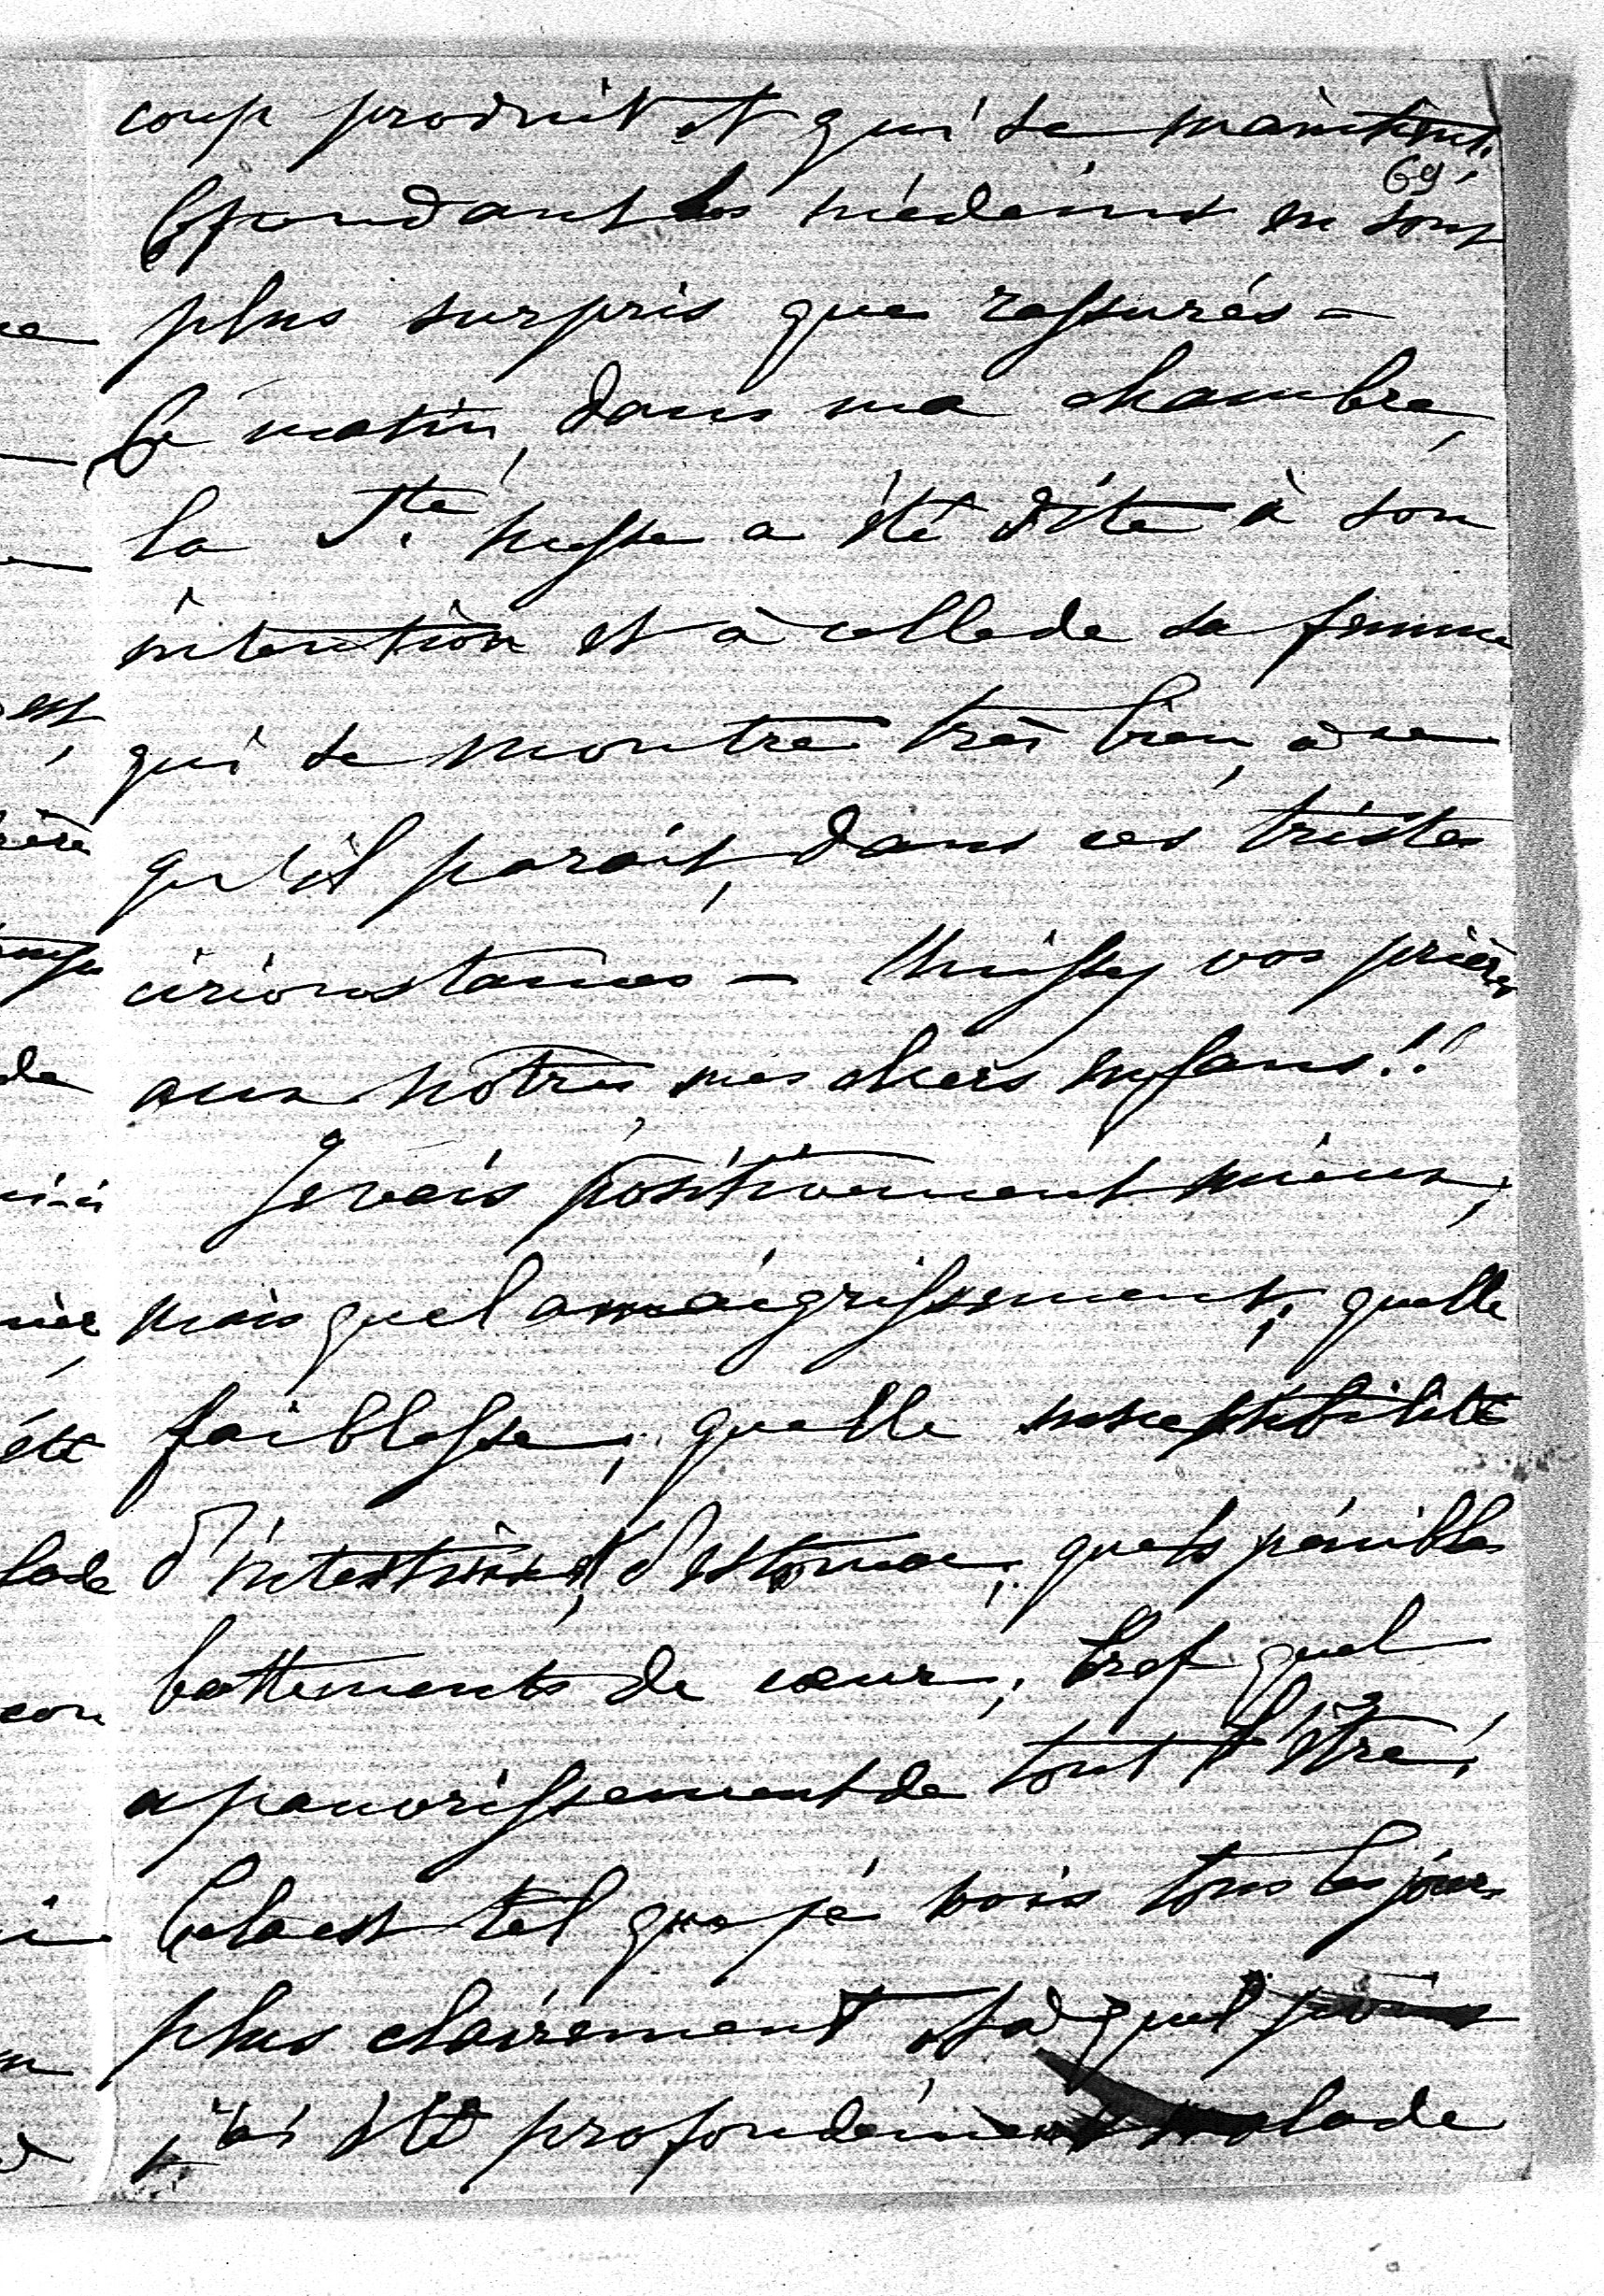 coup produit et qui se maintient.
69
Cependant les médecins en sont
plus surpris que rassurés -
Ce matin, dans ma chambre,
la Ste messe a été dite à son
intention et à celle de sa femme
qui se montre très bien, à ce
qu'il paraît, dans ces tristes
circonstances - Unissez vos prières
aux nôtres, mes chers enfans!!
Je vais positivement mieux,
mais quel amaigrissement; quelle
faiblesse; quelle susceptibilité
d'intestins, d'estomac; quels pénibles
battements de cœur; bref, quel
apauvrissement de tout l'être!
Cela est tel que je vois tous les jours
plus clairement, à quel
j'ai été profondément malade
ce
est,
de
été
lade